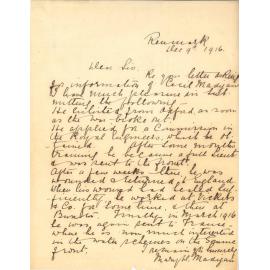 Renmark
Dec 9th 1916.
Dear Sir,
Re your letter asking
for information of Cecil Madigan
I have much pleasure in sub-
mitting the following —
He enlisted from Oxford as soon
as the war broke out.
He applied for a Commission in
the Royal Engineers, which he ob-
tained. After some months
training he became a full Lieut
& was sent to the front.
After a few weeks there, he was
wounded & returned to England.
When his wound had healed suf-
ficiently he worked at Vickers
& Co for some time, & then at
Buxton. Finally in March 1916
he was again sent to France
where he is now much interested
in the water schemes on the Somme
front. I remain yrs sincerely
Mary D. Madigan